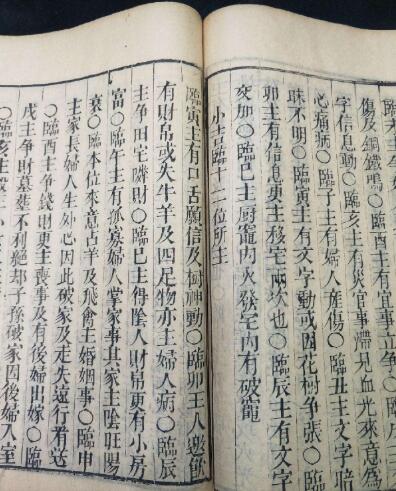 傷及銅鐵鳴○臨酉主有文字暗
字信息動○臨亥主有災官事滯見血光來意為
心痛病○臨子主有婦人產傷○臨丑主文字
昧不明○臨寅主有文字動或因花樹爭張○臨
卯主有信息更主移宅兩次也○臨辰主有文字
交加○臨巳主廚竈內火發宅內有破竈
小吉臨十二位所主
臨寅主有口舌願信及樹神動○臨卯主人邀飲
有財帛或失牛羊及四足物亦主婦人病○臨辰
主爭田宅財○臨巳主得陰人財帛更有小房
富○臨午主有孤寡婦人掌家事其家主陰旺陽
衰○臨本位來意占羊及飛禽主婚姻事○臨申
主家長婦人生外心因此破家及走失遠行
○臨酉主爭錢財更主喪事及有後婦出嫁○臨
戌主爭財墓葬不利絕却子孫破家因後婦入室
○臨亥主